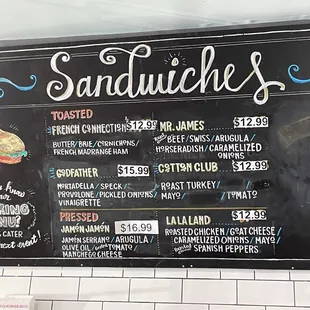 Sandwiches
TOASTED
FRENCH CONNECTION $12.95
BUTTER / BRIE / CORNICHONS /
FRENCH MADRANGE HAM
GODFATHER $15.99
MORTADELLA / SPECK /
PROVOLONE / PICKLED ONIONS /
VINAIGRETTE
PRESSED
JAMÓN JAMÓN $16.99
JAMÓN SERRANO / ARUGULA /
OLIVE OIL / TOMATO /
MANCHEGO CHEESE
MR. JAMES $12.99
BEEF / SWISS / ARUGULA /
HORSERADISH / CARAMELIZED
ONIONS
COTTON CLUB $12.99
ROAST TURKEY /
MAYO / TOMATO
LA LA LAND $12.99
ROASTED CHICKEN / GOAT CHEESE /
CARAMELIZED ONIONS / MAYO /
SPANISH PEPPERS
have
our
CATER
next event!